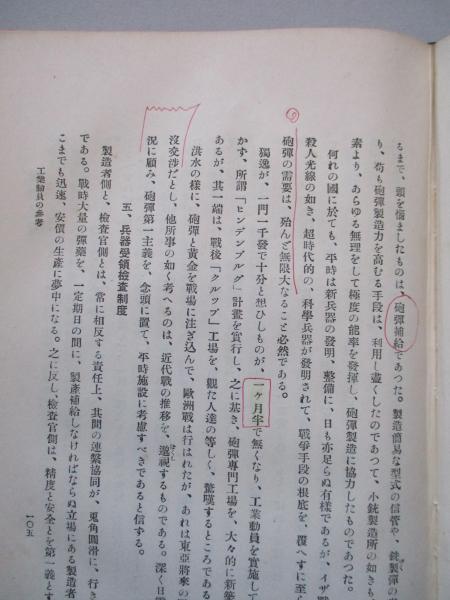 るまで、頭を惱ましたものは、砲彈補給であつた。製造簡易な型式の信管や、銑製彈の
り、苟も砲彈製造力を高むる手段は、利用し盡くしたのであつて、小銃製造所の如きも
素より、あらゆる無理をして極度の能率を發揮し、砲彈製造に協力したものであつた。
何れの國に於ても、平時は新兵器の發明、整備に、日も亦足らぬ有様であるが、イザ戰
殺人光線の如き、超時代的の、科學兵器が發明されて、戰爭手段の根底を、覆へすに至ら
砲彈の需要は、殆んど無限大なること必然である。
獨逸が、一門一千發で十分と想ひしものが、一ヶ月半で無くなり、工業動員を實施して
かす、所謂「ヒンデンブルグ」計畫を實行し、之に基き、砲彈專門工場を、大々的に新築
あるが、其一端は、戰後「クルップ」工場を、觀た人達の等しく、驚嘆するところである
洪水の樣に、砲彈と黄金を戰場に注ぎ込んで、歐洲戰は行はれたが、あれは東亞將來の
沒交渉だとし、他所事の如く考へるのは、近代戰の推移を、邈視するものである。深く日
況に顧み、砲彈第一主義を、念頭に置て、平時施設に考慮すべきであると信ずる。
五、兵器受領檢査制度
製造者側と、檢査官側とは、常に相反する責任上、其間の連繫協同が、兎角圓滑に、行き
である。戰時大量の彈藥を、一定期日の間に、製産補給しなければならぬ立場にある製造者
こまでも迅速、安價の生產に夢中になる。之に反し、檢査官側は、精度と安全とを第一義とす
工業動員の參考
一〇五